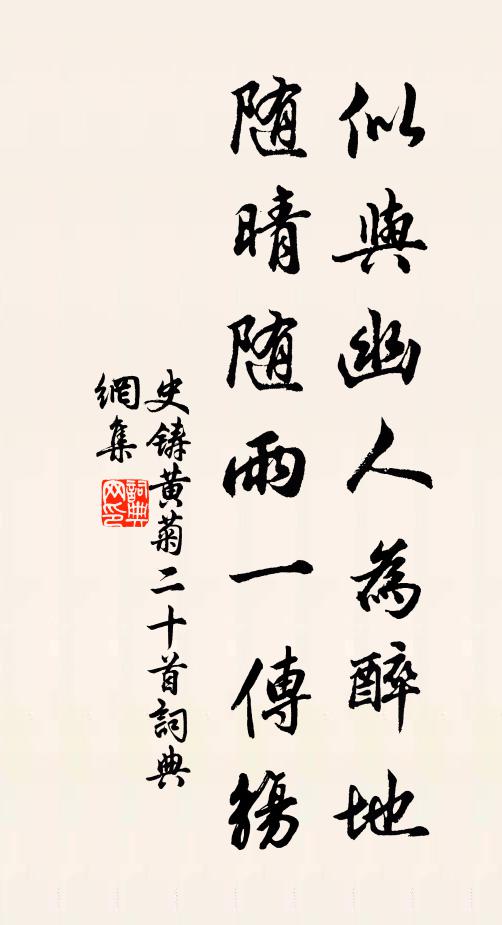 似與幽人為醉地
随晴随雨一傳觴
史鑄黄菊二十首詞典
網集
詞典
网印